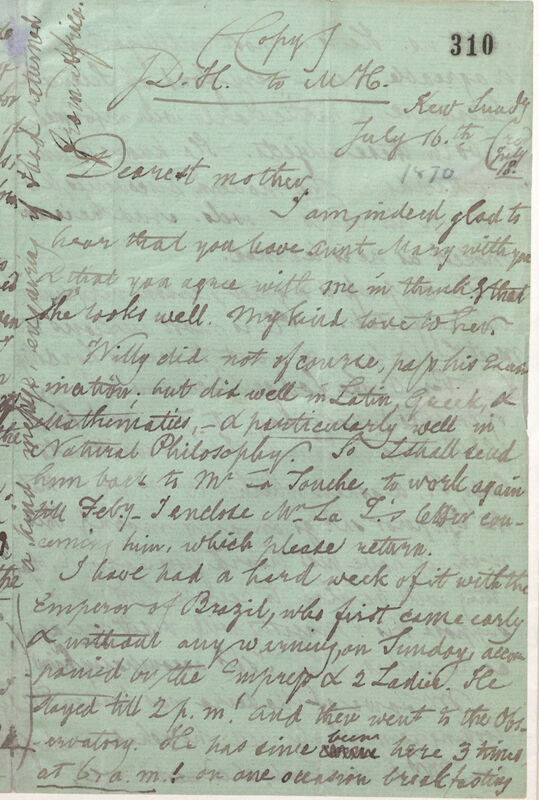 310
(Copy)
J.D.H. to M.H.
Kew Sunday
July 16th
July 18.
1870
Dearest mother,
I am, indeed, glad to
hear that you have aunt Mary with you
& that you agree with me in thinkg that
she looks well. My kind love to her.
Willy did not of course, pass his Exam-
ination. but did well in Latin, Greek, &
Mathematics, - & particularly well in
Natural Philosophy. So I shall send
him back to Mr La Touche, to work again
till Feby - I enclose Mr La T.'s letter con-
cerning him, which please return.
I have had a hard week of it with the
Emperor of Brazil, who first came early
& without any warning, on Sunday, accom
panied by the Empress & 2 Ladies. He
stayed till 2 p.m! and then went to the Obs-
-ervatory. He has since been here 3 times
at 6 a.m.! on one occasion breakfasting
returned
from Africa.